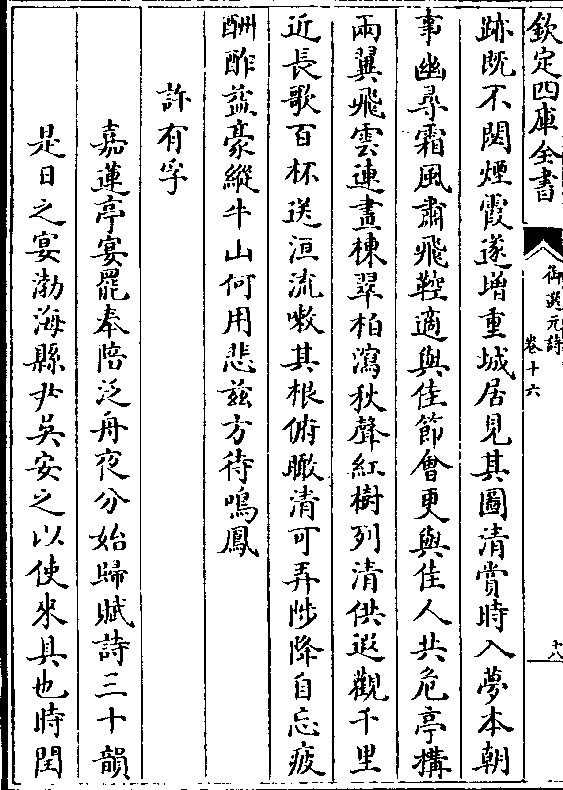 欽定四庫全書
御選元詩
卷十六
十八
跡既不閡煙霞遂增重城居見其圖清賞時入夢本朝
事幽尋霜風肅飛鞚適與佳節會更與佳人共危亭構
兩翼飛雲連畫棟翠柏瀉秋聲紅樹列清供遐觀千里
近長歌百杯送洹流嗽其根俯瞰清可弄陟降自忘疲
酬酢益豪縱牛山何用悲兹方待鳴鳳
許有孚
嘉蓮亭宴罷奉陪泛舟夜分始歸賦詩三十韻
是日之宴渤海縣尹吳安之以使來具也時閏